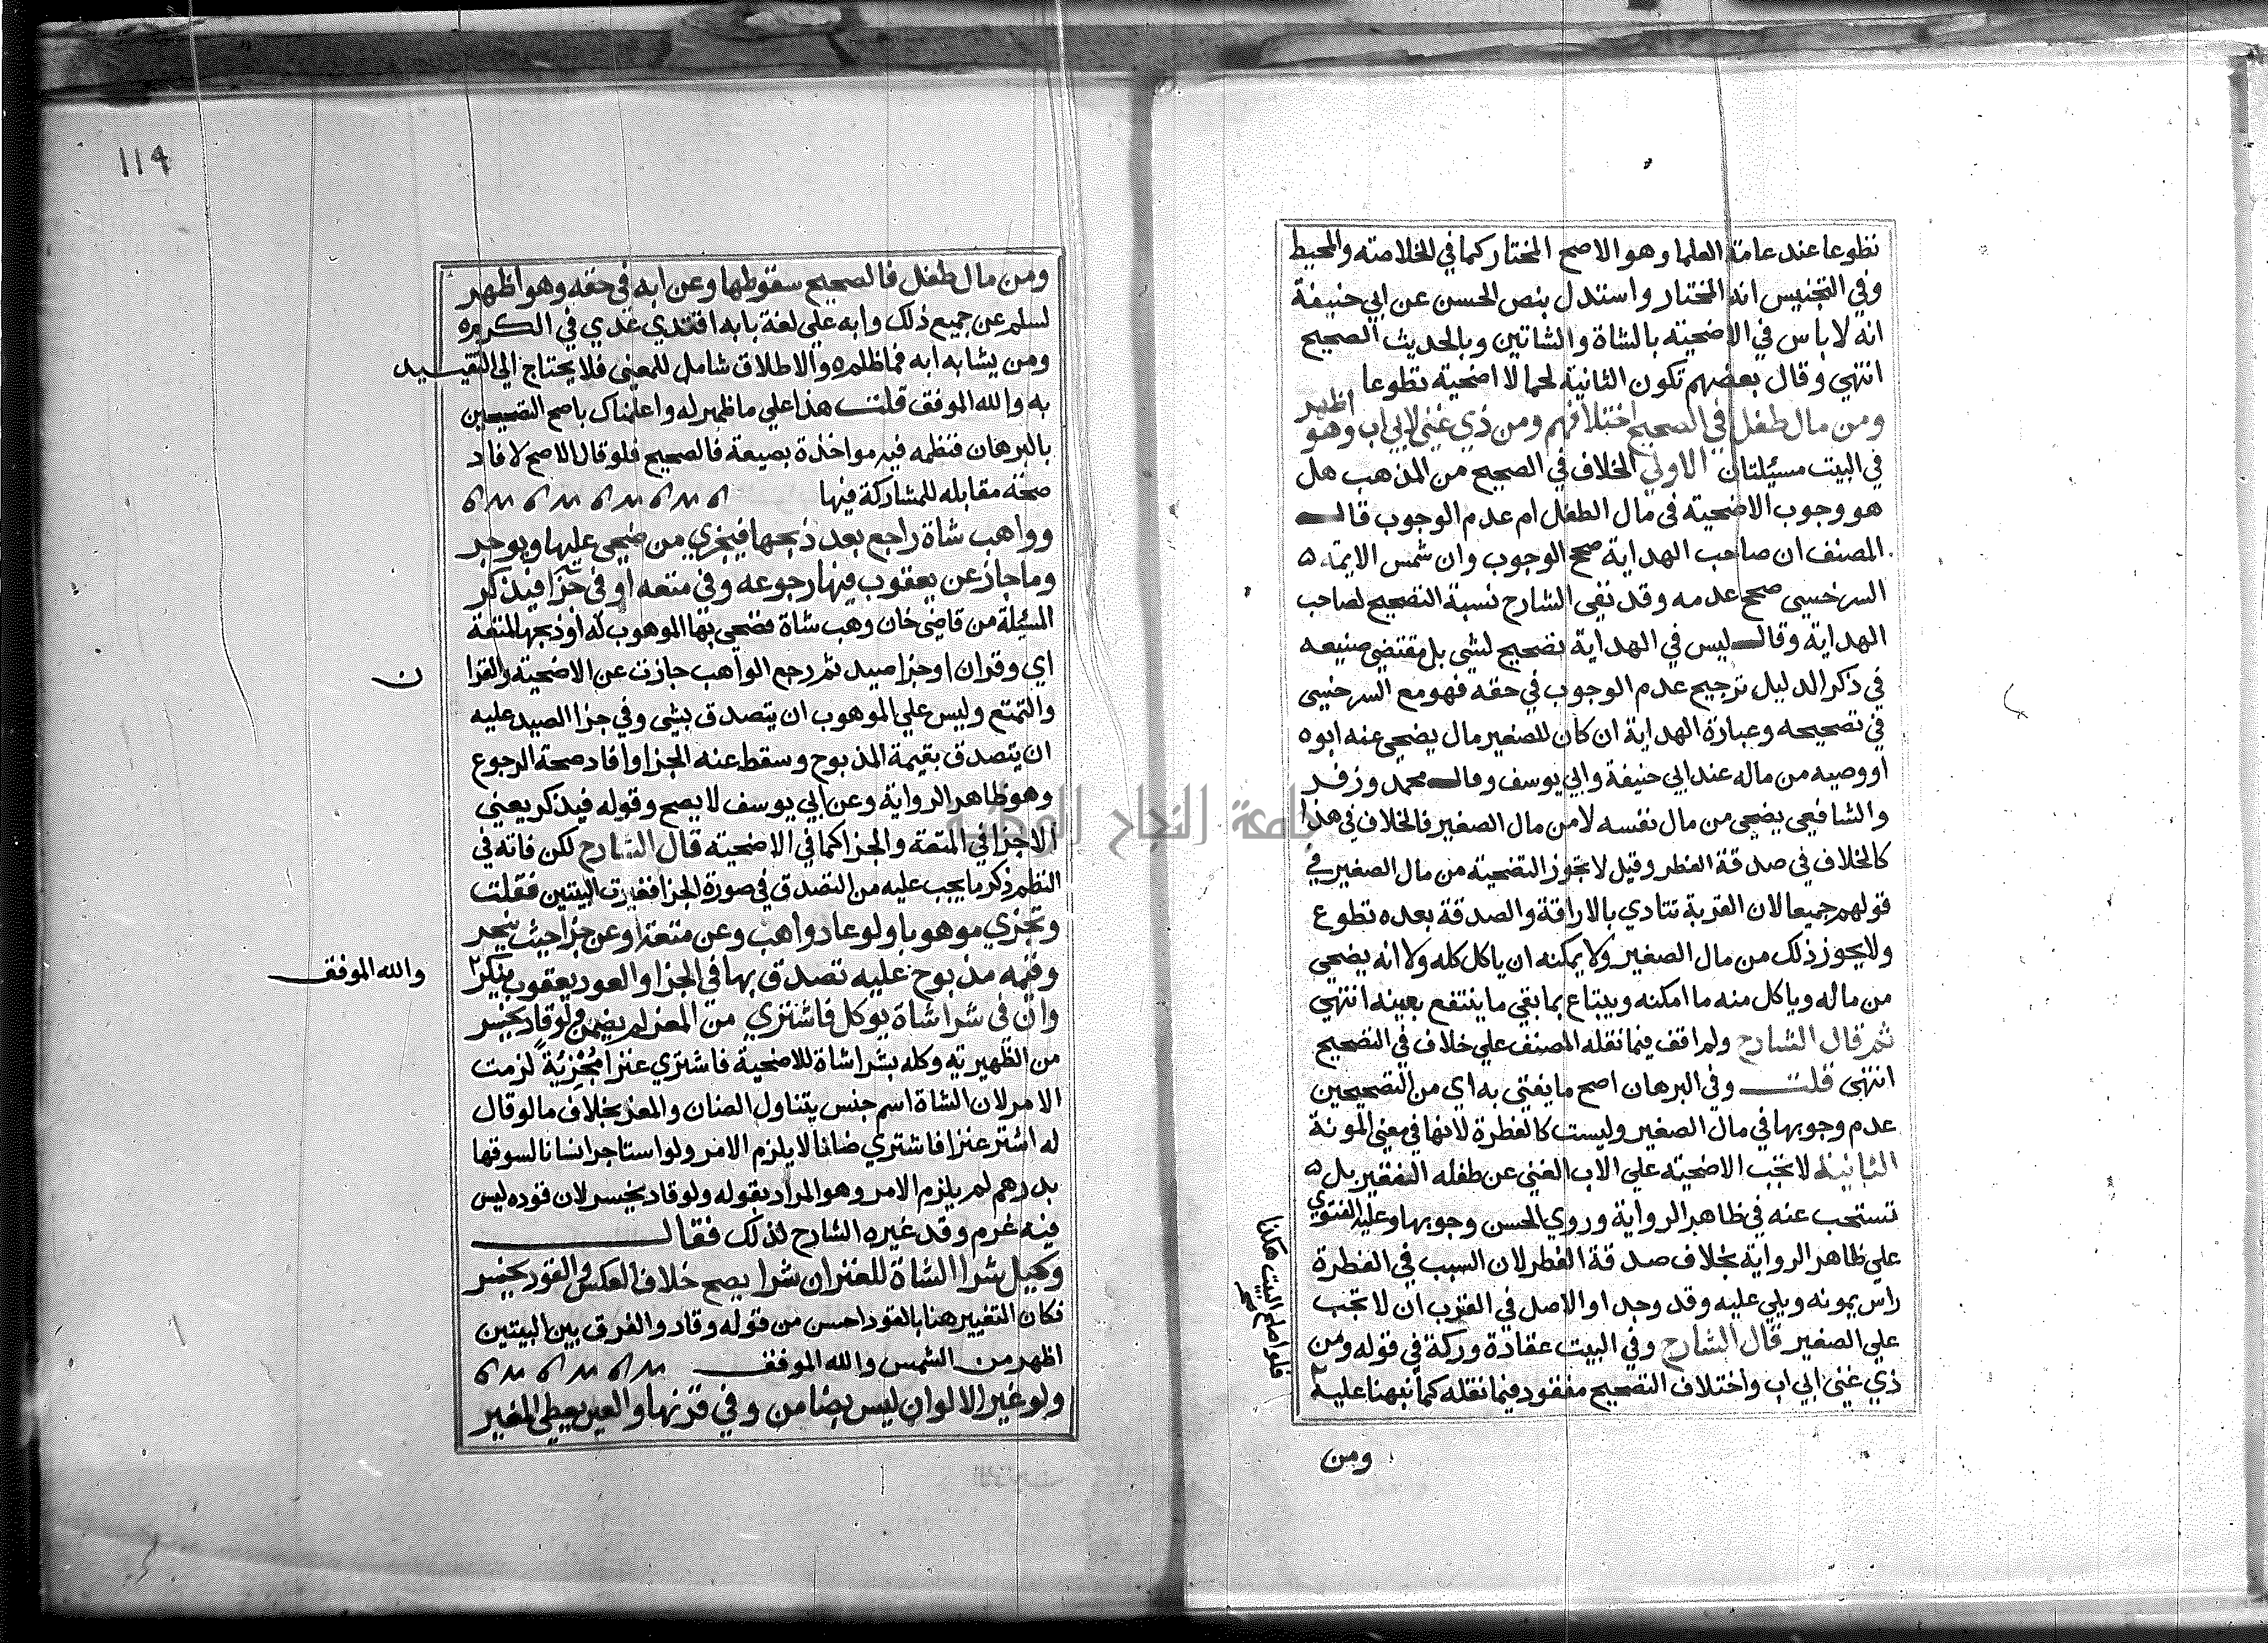 تطوعا عند عامة العلما وهو الاصح المختار كما في الخلاصة والمحيط
وفي التجنيس انه المختار واستدل بنص الحسن عن ابي حنيفة
انه لا باس في الاضحية بالشاة والشاتين وبالحديث الصحيح
انتهي وقال بعضهم تكون الثانية لحما لا اضحية تطوعا
ومن مال طفل في الصحيح اختلافهم ومن ذي غني لابي اب وهو اظهر
في البيت مسيلتان الاولي الخلاف في الصحيح من المذهب هل
هو وجوب الاضحية في مال الطفل ام عدم الوجوب قال
المصنف ان صاحب الهداية صحح الوجوب وان شمس الايمة
السرخسي صحح عدمه وقد نفي الشارح نسبة التصحيح لصاحب
الهداية وقال ليس في الهداية تصحيح لشي بل مقتضي صنيعه
في ذكر الدليل ترجيح عدم الوجوب في حقه فهو مع السرخسي
في تصحيحه وعبارة الهداية ان كان للصغير مال يضحي عنه ابوه
او وصيه من ماله عند ابي حنيفة وابي يوسف وقال محمد وزفر
والشافعي يضحي من مال نفسه لا من مال الصغير فالخلاف في هذا
كالخلاف في صدقة الفطر وقيل لا تجوز التضحية من مال الصغير في
قولهم جميعا لان القربة تتادي بالاراقة والصدقة بعده تطوع
ولا يجوز ذلك من مال الصغير ولا يمكنه ان ياكل كله ولا انه يضحي
من ماله وياكل منه ما امكنه ويبتاع بما بقي ما ينتفع بعينه انتهي
ثم قال الشارح ولم اقف فيما نقله المصنف علي خلاف في التصحيح
انتهي قلت وفي البرهان اصح ما يفتي به اي من التصحيحين
عدم وجوبها في مال الصغير وليست كالفطرة لانها في معني المونة
الثانية لا تجب الاضحية علي الاب الغني عن طفله الفقير بل
تستحب عنه في ظاهر الرواية وروي الحسن وجوبها وعليه الفتوي
علي ظاهر الرواية بخلاف صدقة الفطر لان السبب في الفطرة
راس يمونه ويلي عليه وقد وجدا والاصل في القرب ان لا تجب
علي الصغير قال الشارح وفي البيت عقادة وركة في قوله ومن
ذي غني ابي اب واختلاف التصحيح مفقود فيما نقله كما نبهنا عليه
فلو اصلح البيت هكذا
ومن
١١٩
ومن مال طفل فالصحيح سقوطها وعن ابه في حقه وهو اظهر
لسلم عن جميع ذلك وابه علي لغة بابه اقتدي عدي في الكرم
ومن يشابه ابه فما ظلم والاطلاق شامل للمعني فلا يحتاج الي التقييد
به والله الموفق قلت هذا علي ما ظهر له واعلمناك باصح التصحيحين
بالبرهان فنظمه فيه مواخذة بصيعة فالصحيح فلو قال الاصح لافاد
صحة مقابله للمشاركة فيها
وواهب شاة راجع بعد ذبحها فيجزي من ضحي عليها ويوجر
وما جاز عن يعقوب فيها رجوعه وفي متعه او في جزا فيذكر
المسئلة من قاضي خان وهب شاة فضحي بها الموهوب له او ذبحها لمتعة
اي وقران او جزا صيد ثم رجع الواهب جازت عن الاضحية والقران
والتمتع وليس علي الموهوب ان يتصدق بشي وفي جزا الصيد عليه
ان يتصدق بقيمة المذبوح وسقط عنه الجزا وافاد صحة الرجوع
وهو ظاهر الرواية وعن ابي يوسف لا يصح وقوله فيذكر يعني
الاجزا في المتعة والجزا كما في الاضحية قال الشارح لكن فاته في
النظم ذكر ما يجب عليه من التصدق في صورة الجزا فغيرت البيتين فقلت
وتجزي موهوبا ولو عاد واهب وعن متعة او عن جزا حيث ينحر
وقيمه مذبوح عليه تصدق بها في الجزا والعود يعقوب ينكر
والله الموفق
وان في شرا شاة يوكل فاشتري من المعز لم يضمن ولو قاد يخسر
من الظهيرية وكله بشرا شاة للاضحية فاشتري عنزا مجزية لزمت
الامر لان الشاة اسم جنس يتناول الضان والمعز بخلاف ما لو قال
له اشتر عنزا فاشتري ضانا لا يلزم الامر ولو استاجر انسانا لسوقها
بدرهم لم يلزم الامر وهو المراد بقوله ولو قاد يخسر لان قوده ليس
فيه غرم وقد غيره الشارح لذلك فقال
وكيل شرا الشاة للعنز ان شرا يصح خلاف العكس والقود يخسر
فكان التغيير هنا بالقود احسن من قوله وقاد والفرق بين البيتين
اظهر من الشمس والله الموفق
ولو غير الالوان ليس بضامن وفي قرنها والعين يعطي المغير
جامعة النجاح الوطنية